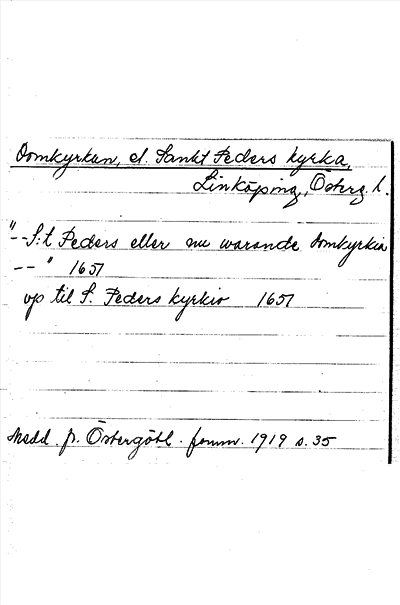 Domkyrkan, el. Sankt Peders kyrka,
Linköping, Österg. l.
"--S:t Peders eller nu warande domkyrkia
--" 1651
up til S. Peders kyrkio 1651
Medd. fr. Östergötl. fornm. 1919 s. 35